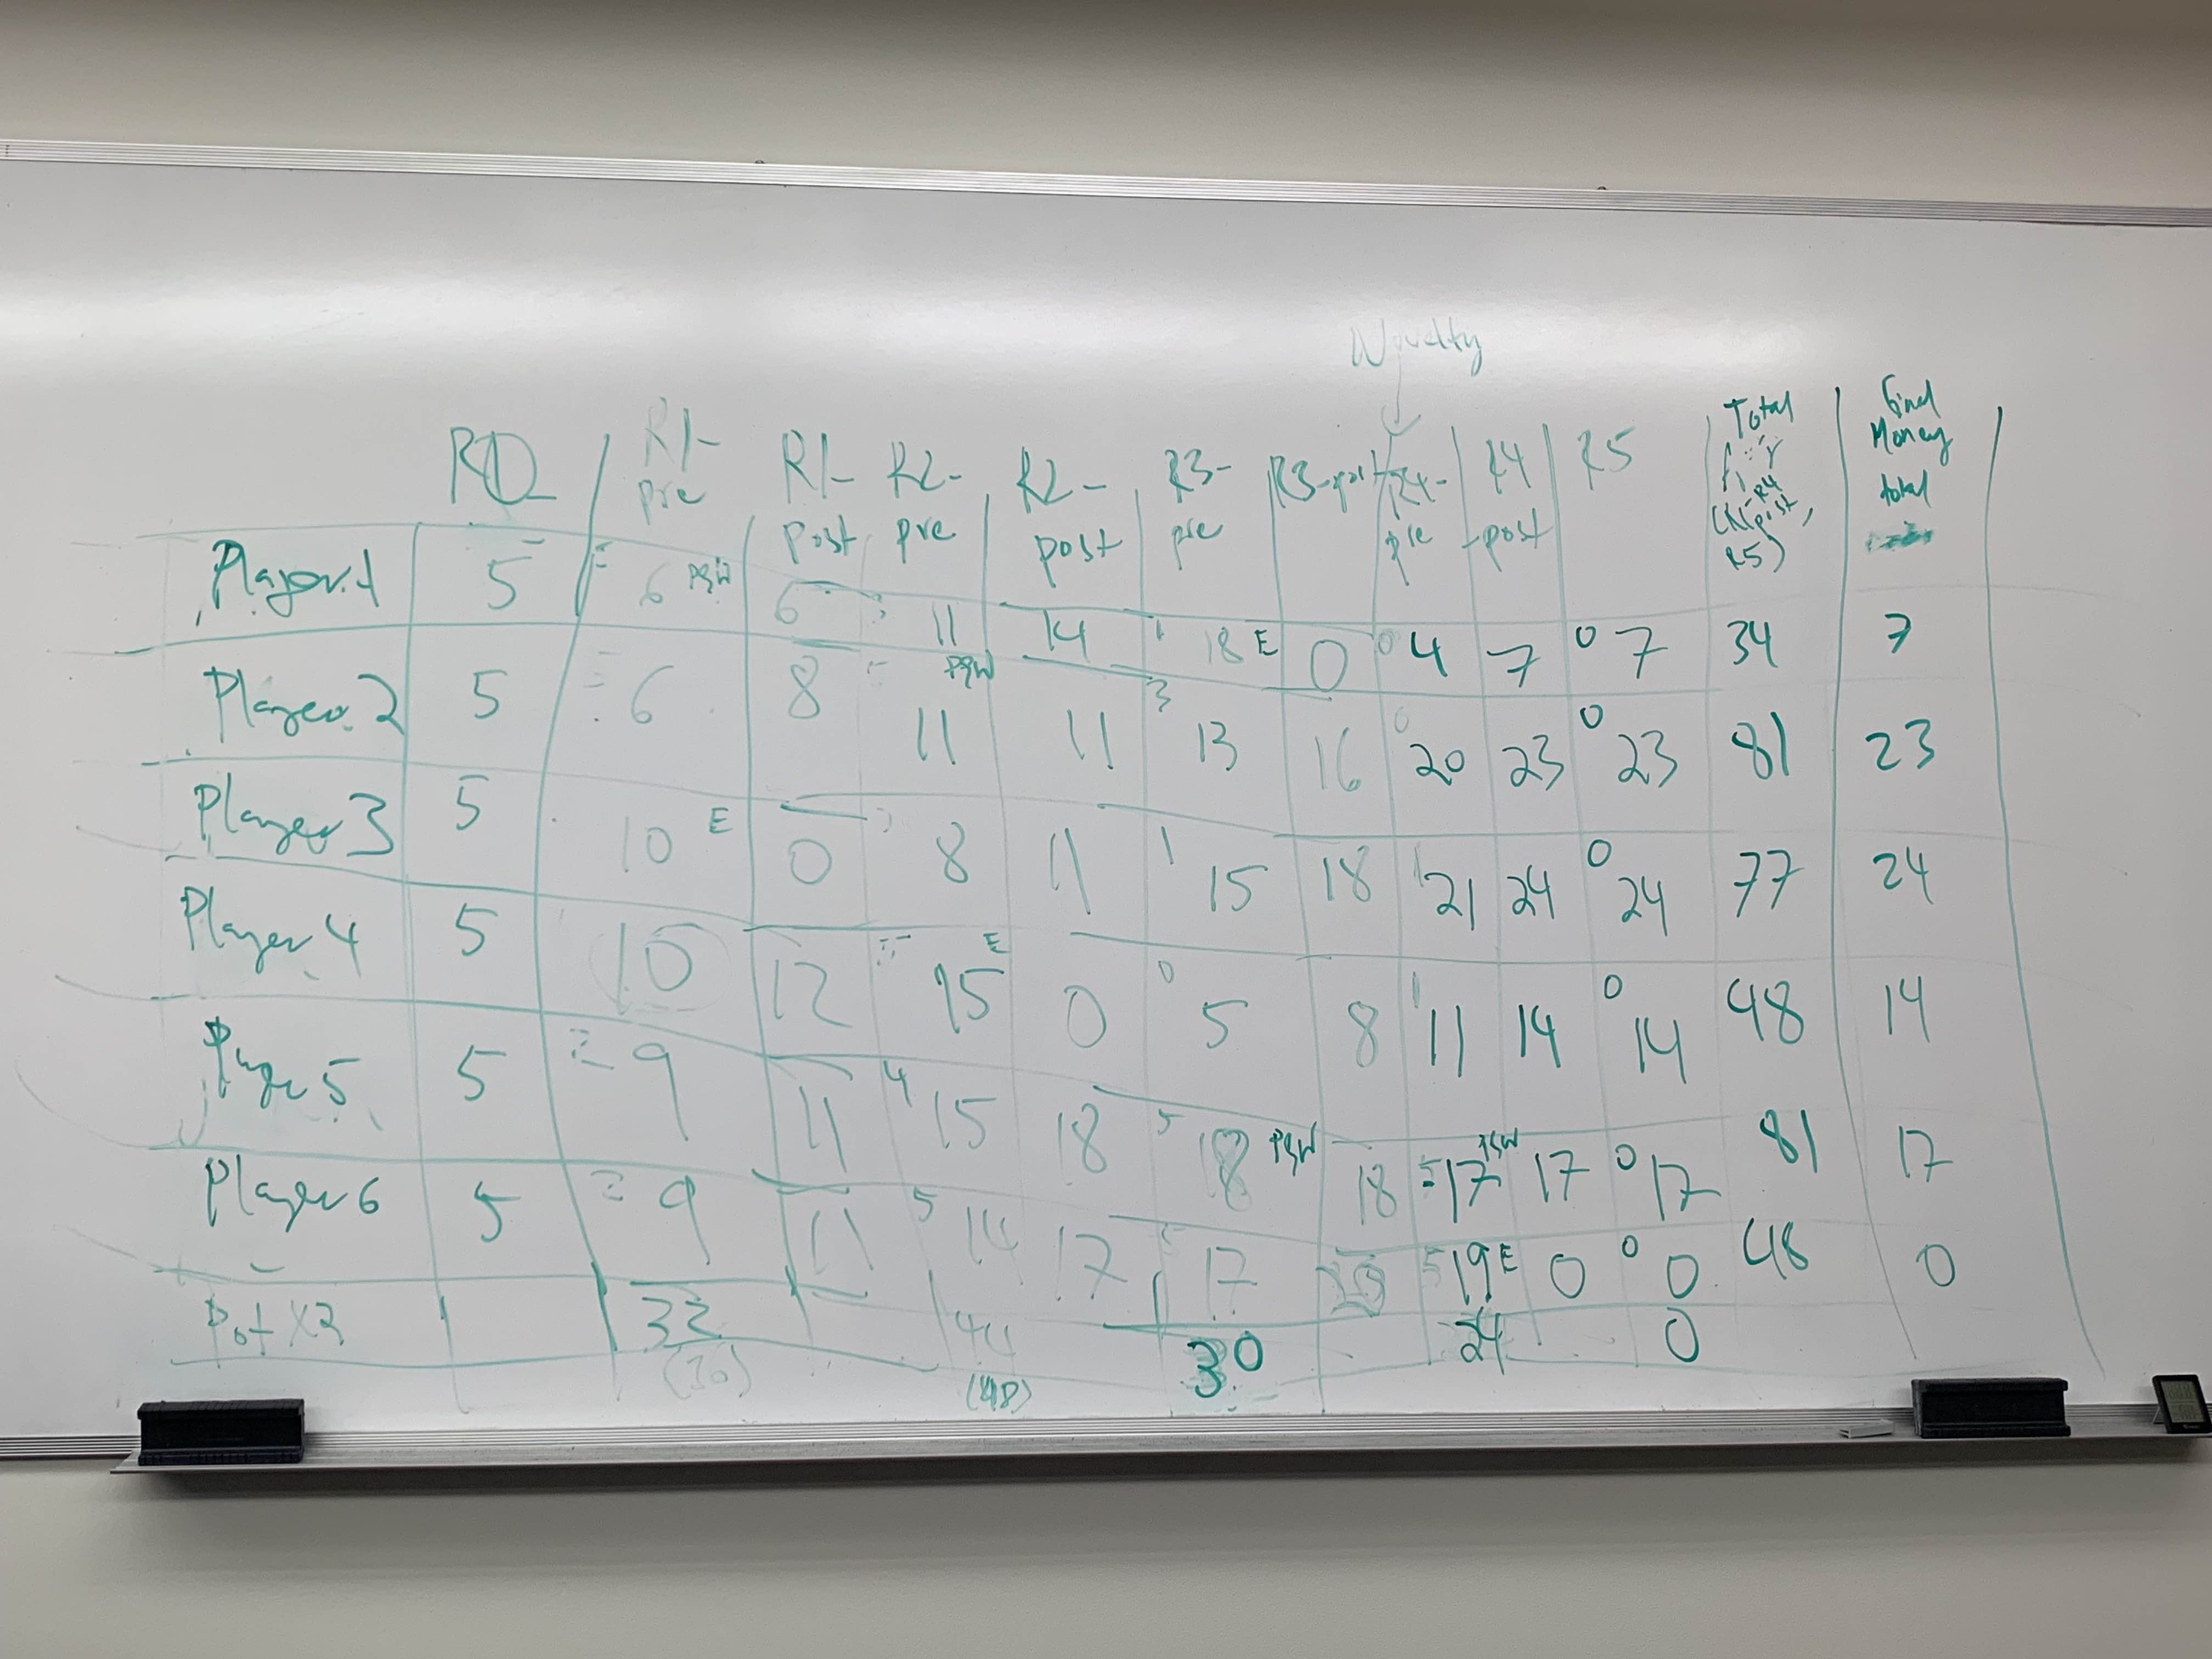 Novelty
R0 R1-pre R1-post R2-pre R2-post R3-pre R3-post R4-pre R4 post R5 Total (R1- R4 post, R5) final Money total
Player 1 5 6 P&W 6 11 14 1 18 E 0 0 4 7 0 7 34 7
Player 2 5 6 8 P&W 11 11 3 13 16 0 20 23 0 23 81 23
Player 3 5 10 E 0 8 11 1 15 18 1 21 24 0 24 77 24
Player 4 5 10 12 15 E 0 0 5 8 1 11 14 0 14 48 14
Player 5 5 9 11 4 15 18 5 18 P&W 18 17 P&W 17 0 17 81 17
Player 6 5 9 11 5 14 17 17 5 19 E 0 0 0 48 0
Pot x2 32 (36) 44 (48) 30 24 0